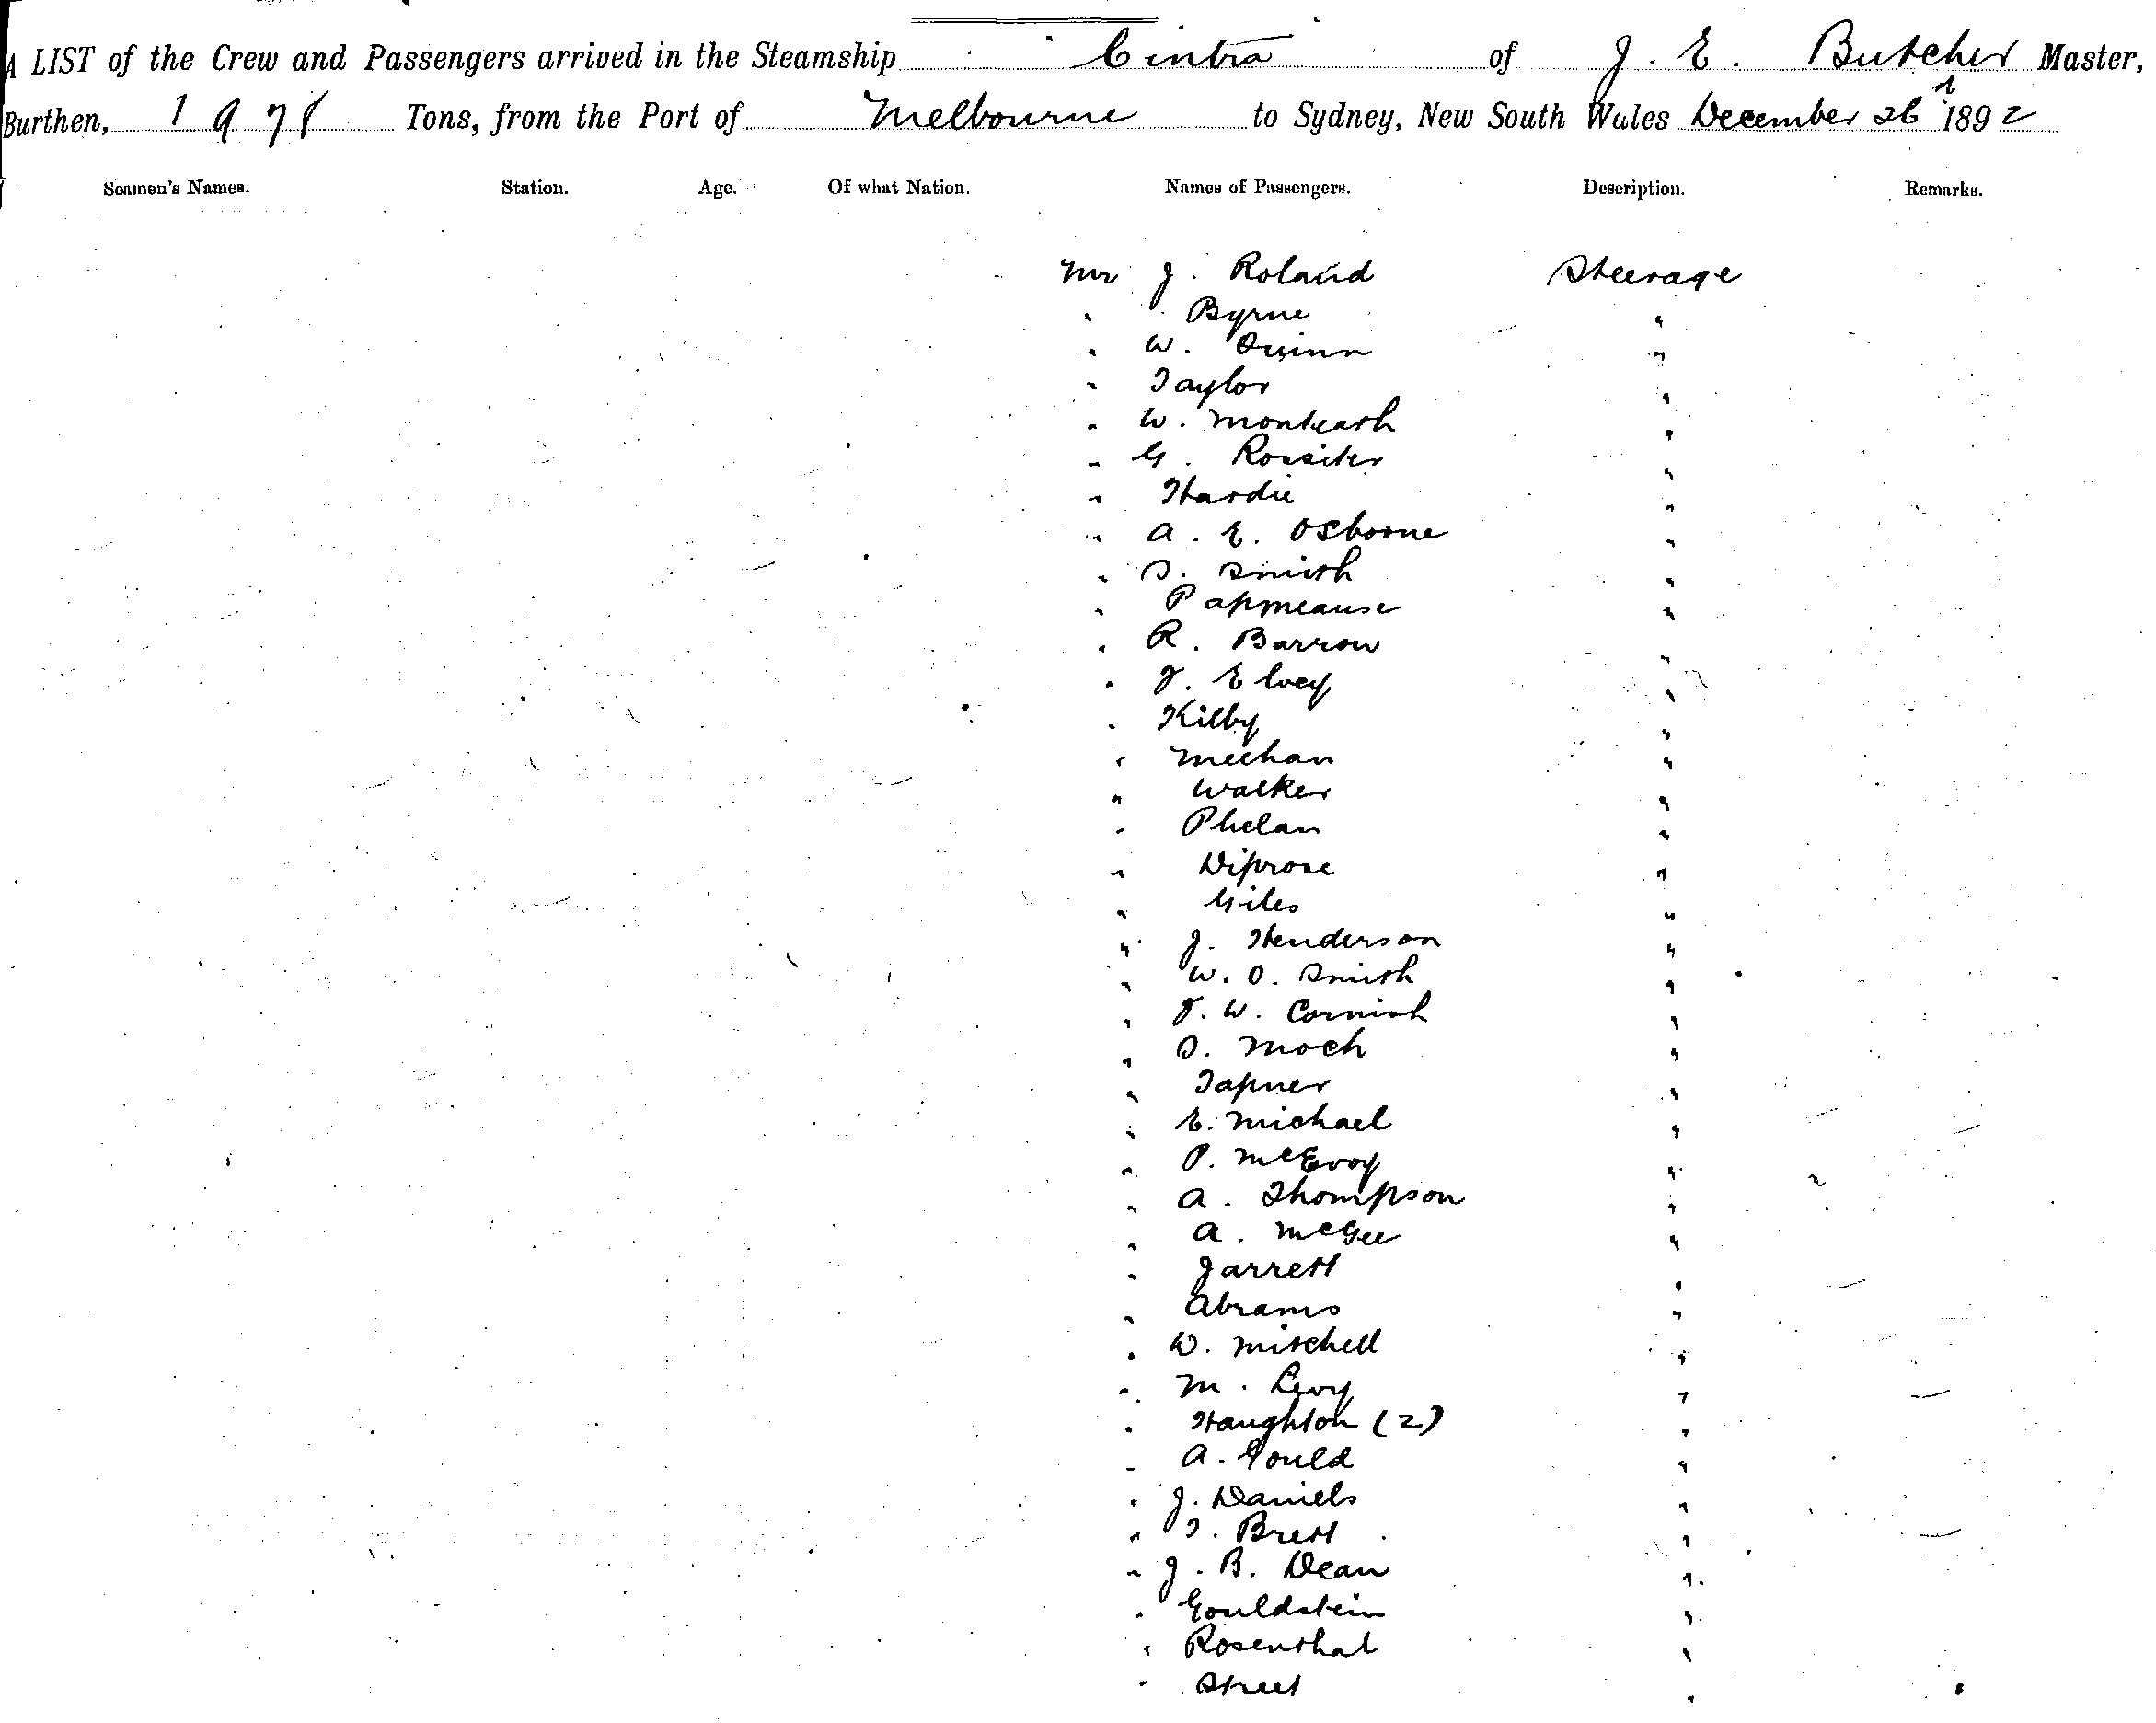 A LIST of the Crew and Passengers arrived in the Steamship Cintra of J. E. Butcher Master,
Burthen, 1978 Tons, from the Port of Melbourne to Sydney, New South Wales December 26th 1892
Seamen's Names. Station. Age. Of what Nation. Names of Passengers. Description. Remarks.
Mr J. Roland Steerage
" Byrne "
" W. Quinn "
" Taylor "
" W. Monteath "
" G. Rossiter "
" Hardie "
" A. E. Osborne "
" S. Smith "
" Papmeause "
" R. Barrow "
" J. Elvey "
" Kilby "
" Meehan "
" Walker "
" Phelan "
" Diprose "
" Giles "
" J. Henderson "
" W. O. Smith "
" F. W. Cornish "
" S. Moch "
" Tapner "
" E. Michael "
" P. McEvoy "
" A. Thompson "
" A. McGee "
" Jarrett "
" Abrams "
" W. Mitchell "
" M. Levy "
" Haughton (2) "
" A. Gould "
" J. Daniels "
" T. Brett "
" J. B. Dean "
" Gouldstein "
" Rosenthal "
" Street "